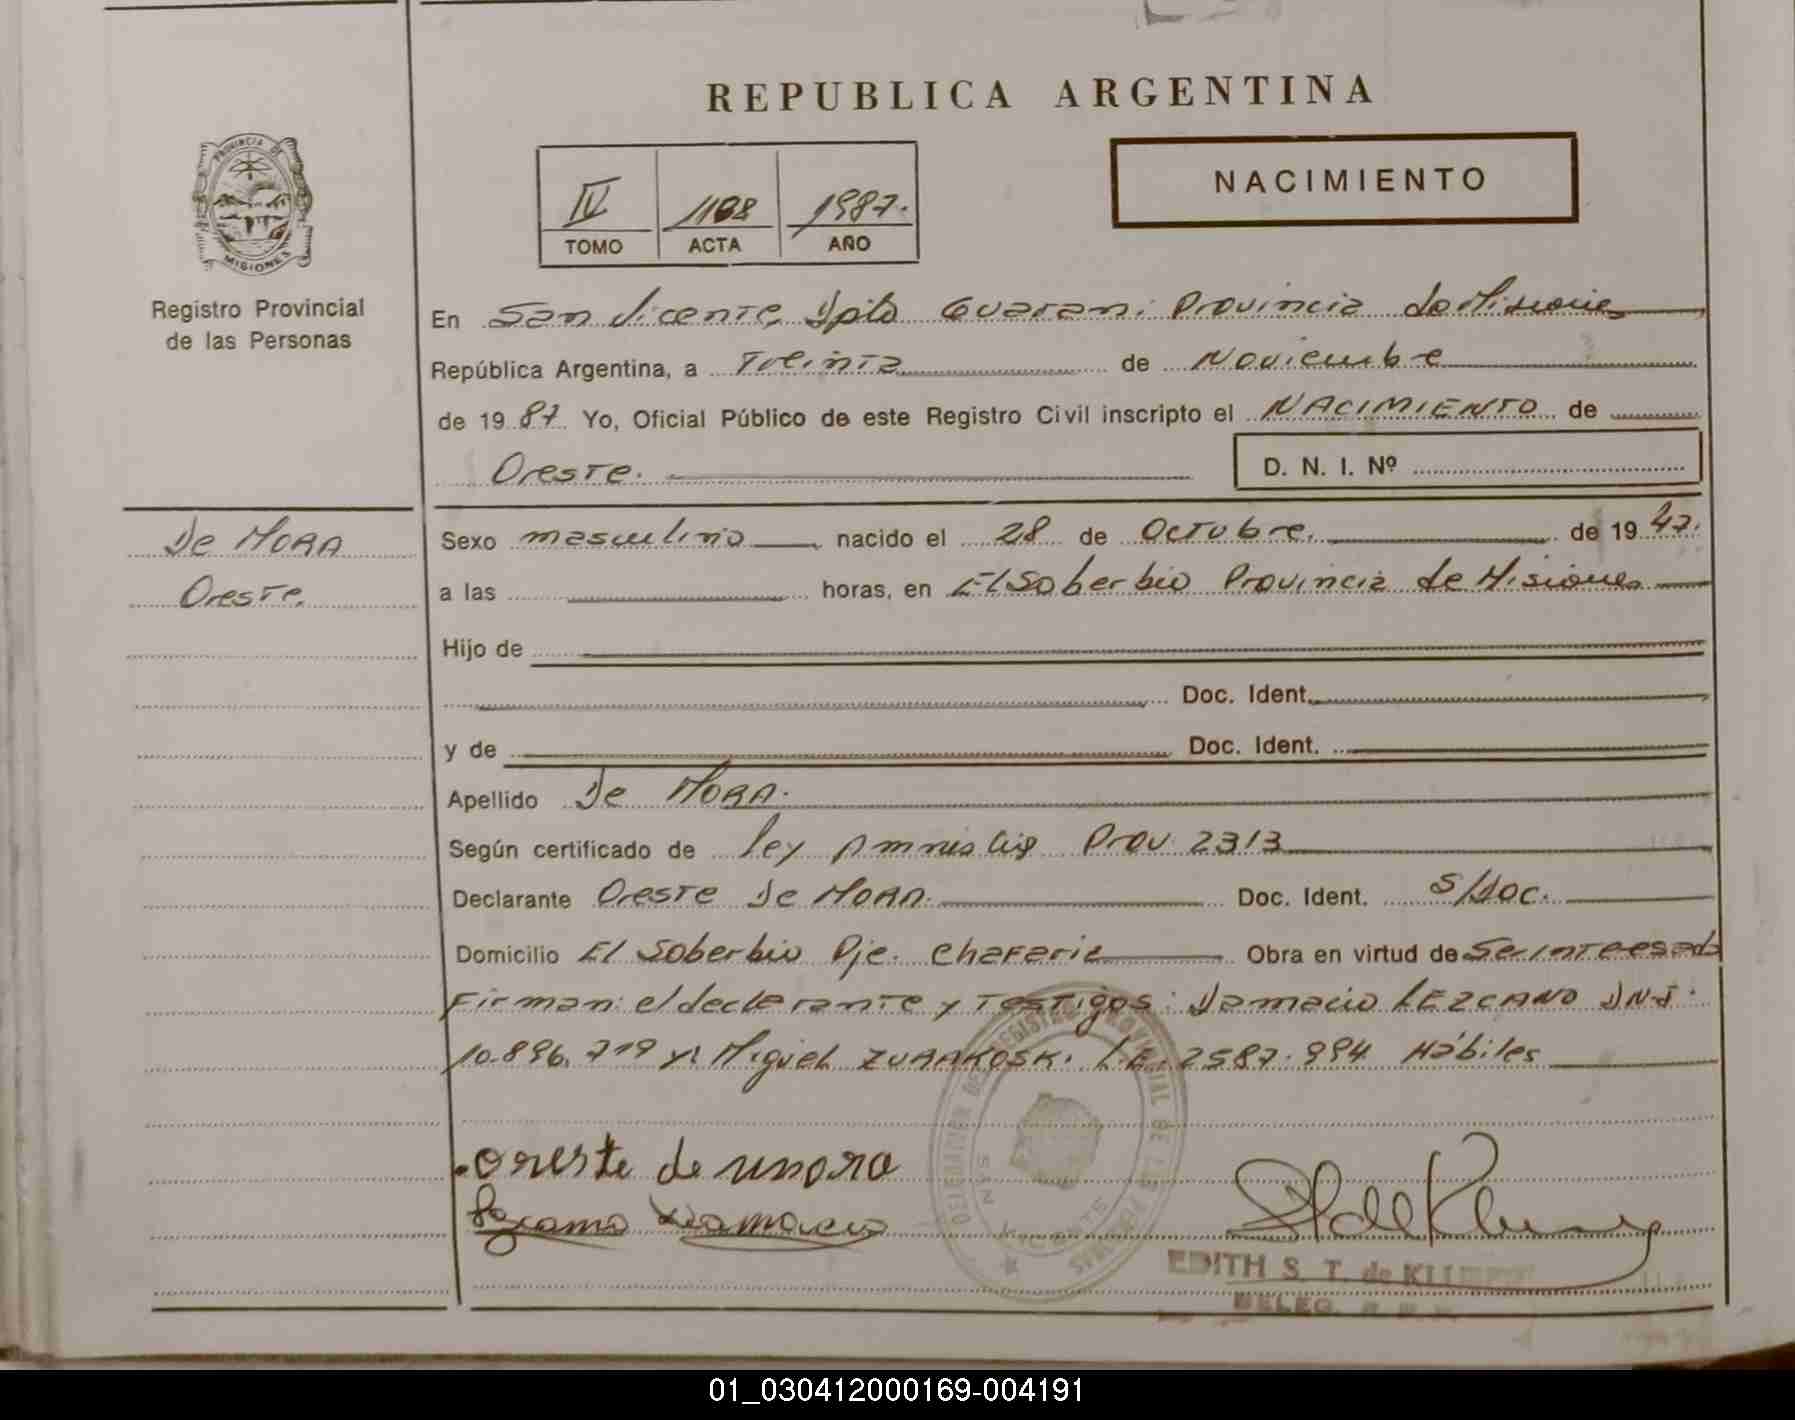 REPUBLICA ARGENTINA
PROVINCIA DE
MISIONES
Registro Provincial
de las Personas
IV 1198 1987.
TOMO ACTA AÑO
NACIMIENTO
En San Vicente, Dpto Guarani Provincia de Misiones
República Argentina, a Treinta de Noviembre
de 1987 Yo, Oficial Público de este Registro Civil inscripto el NACIMIENTO de
Oreste. D. N. I. Nº
De MORA
Oreste.
Sexo masculino nacido el 28 de Octubre. de 1947.
a las horas, en El Soberbio Provincia de Misiones
Hijo de
Doc. Ident.
y de Doc. Ident.
Apellido De MORA.
Según certificado de ley Amnistia Prov 2313
Declarante Oreste De MORA. Doc. Ident. S/Doc.
Domicilio El Soberbio Pje. Chafariz Obra en virtud de Ser Interesado
Firman: el declarante y Testigos: Damacio LEZCANO DNI.
10.896.719 y: Miguel ZURAKOSKi L.E. 2587.994 Hábiles
oreste de mora
Damacio
DELEGACION DEL REGISTRO PROVINCIAL DE LAS PERSONAS
SAN VICENTE
EDITH S. T. de
DELEG.
01_030412000169-004191